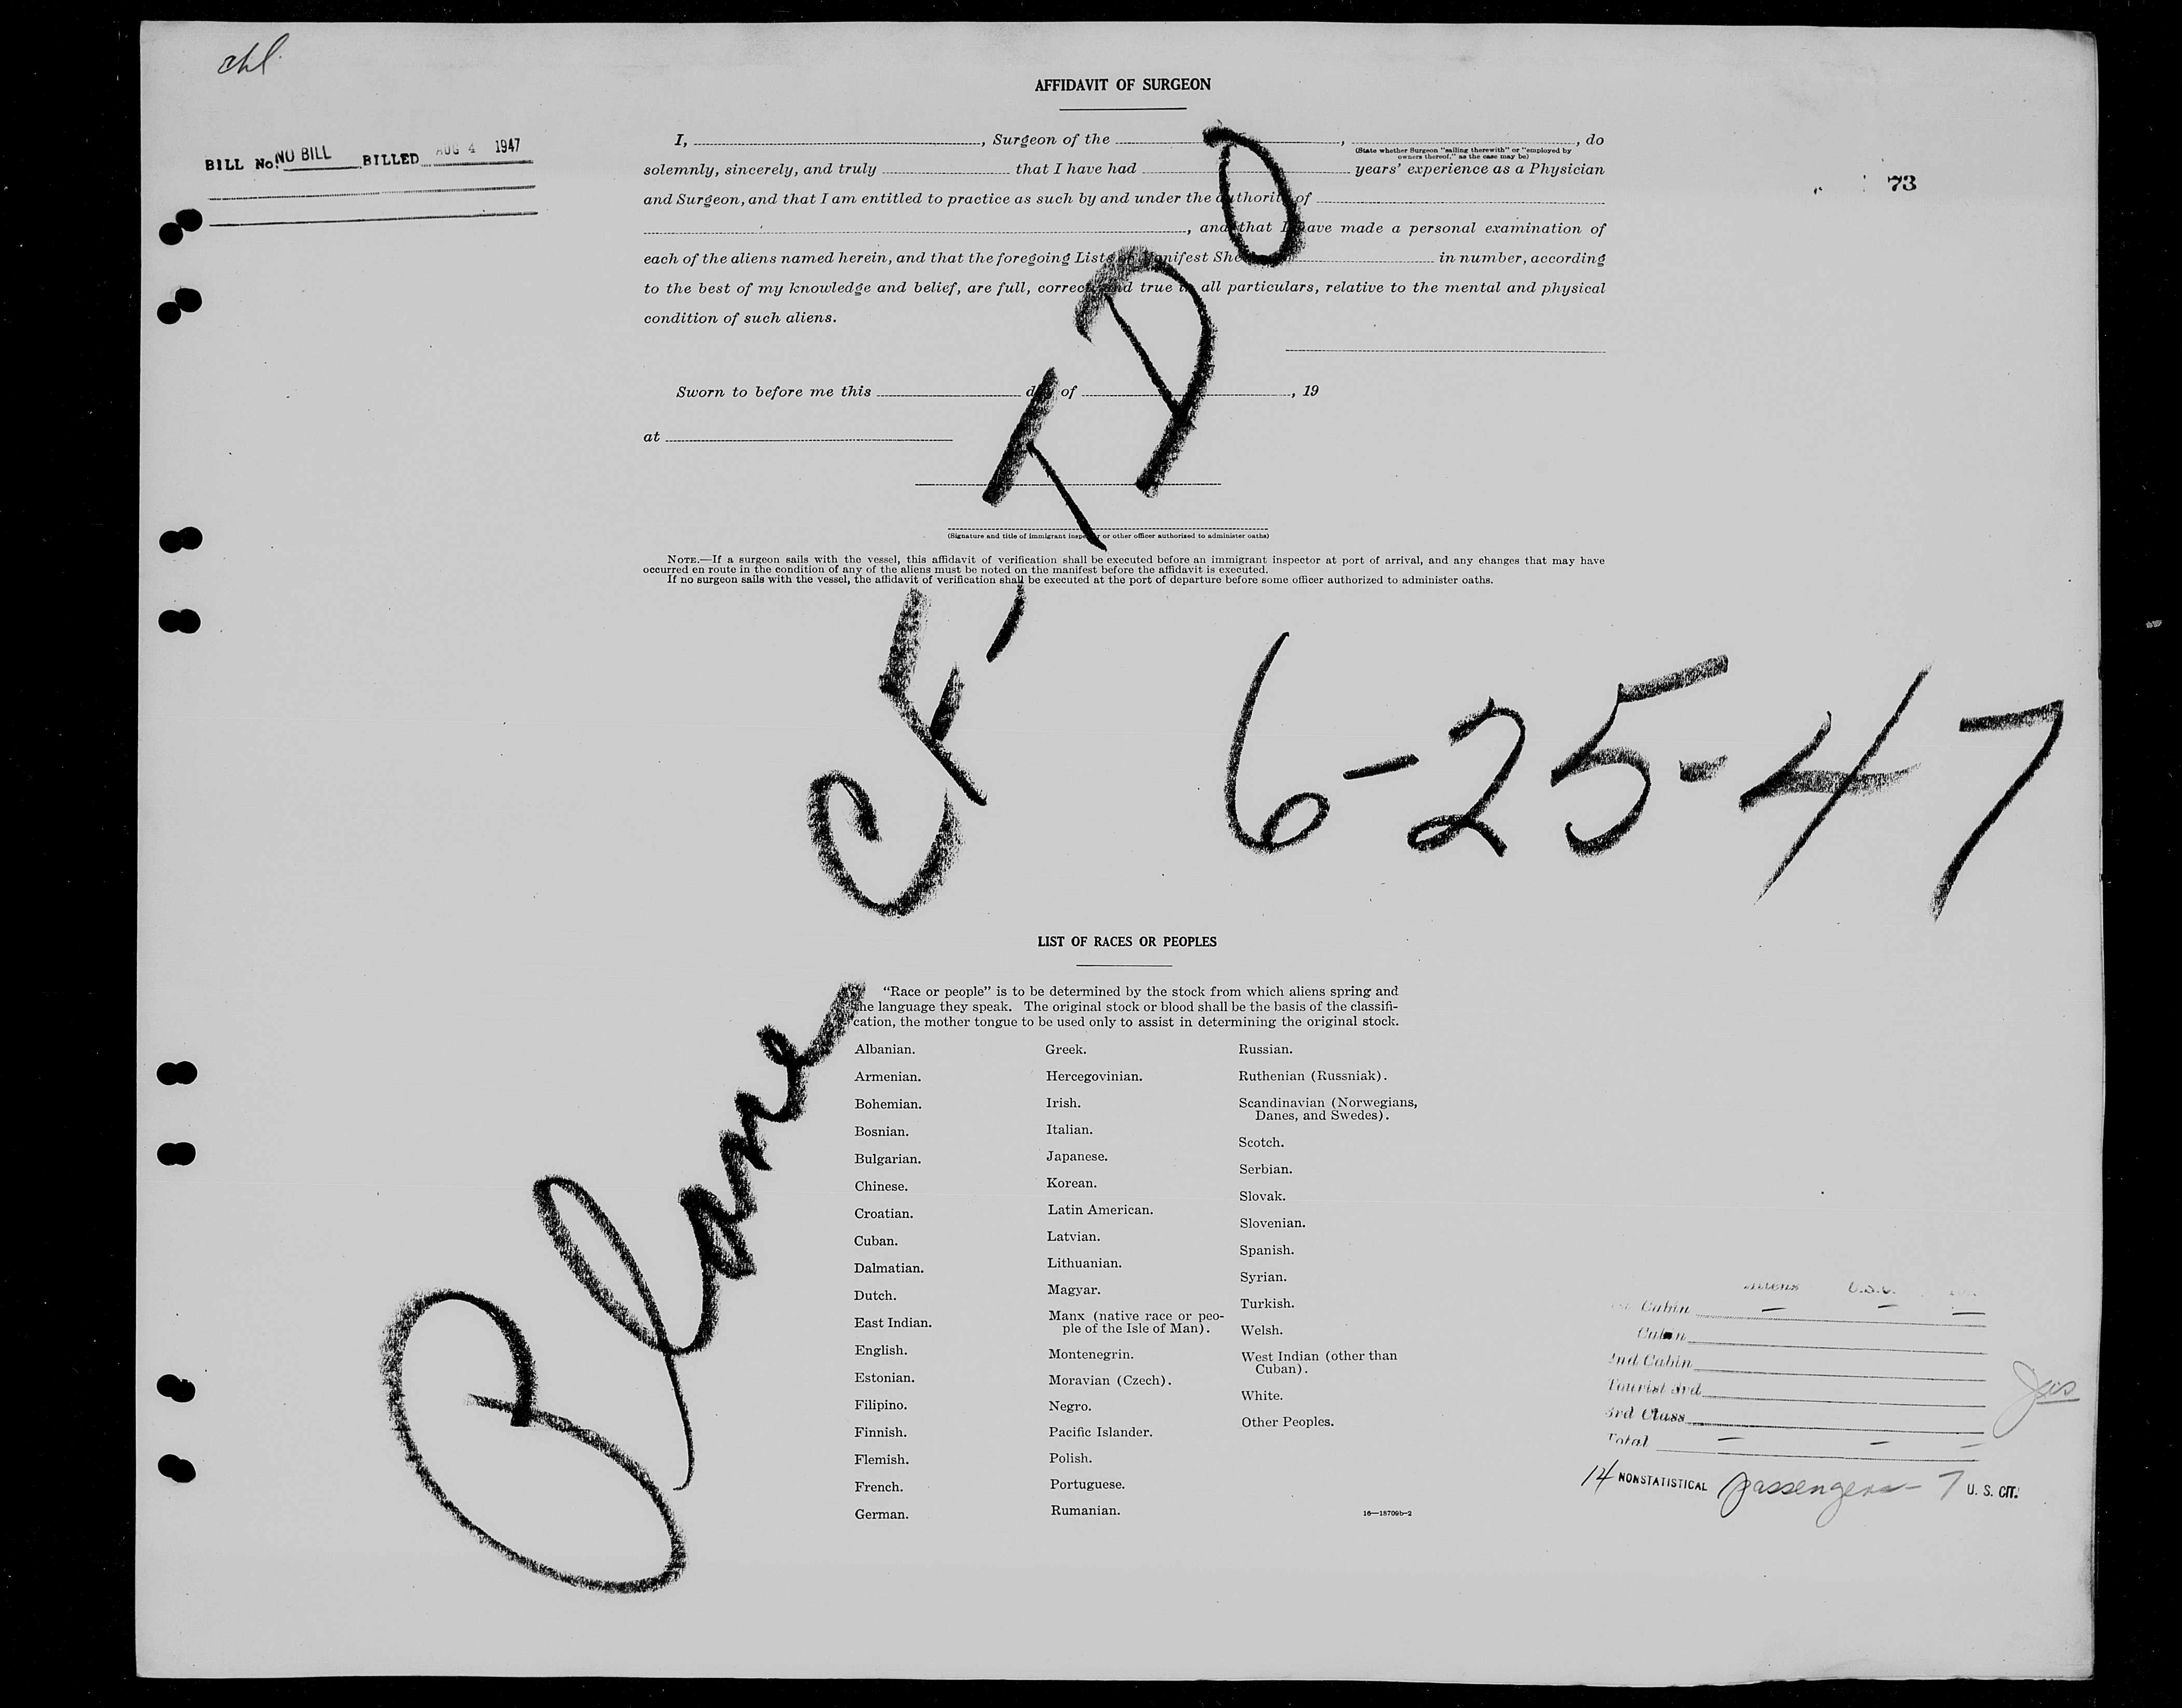 chl.
AFFIDAVIT OF SURGEON
BILL No. NO BILL BILLED AUG 4 1947
73
I, , Surgeon of the , , do
(State whether Surgeon "sailing therewith" or "employed by
owners thereof," as the case may be)
solemnly, sincerely, and truly that I have had years' experience as a Physician
and Surgeon, and that I am entitled to practice as such by and under the authority of
, and that I have made a personal examination of
each of the aliens named herein, and that the foregoing Lists or Manifest Sheets, in number, according
to the best of my knowledge and belief, are full, correct, and true in all particulars, relative to the mental and physical
condition of such aliens.
Sworn to before me this day of , 19
at
(Signature and title of immigrant inspector or other officer authorized to administer oaths)
NOTE.—If a surgeon sails with the vessel, this affidavit of verification shall be executed before an immigrant inspector at port of arrival, and any changes that may have
occurred en route in the condition of any of the aliens must be noted on the manifest before the affidavit is executed.
If no surgeon sails with the vessel, the affidavit of verification shall be executed at the port of departure before some officer authorized to administer oaths.
Plane CF-TDO
6-25-47
LIST OF RACES OR PEOPLES
"Race or people" is to be determined by the stock from which aliens spring and
the language they speak. The original stock or blood shall be the basis of the classifi-
cation, the mother tongue to be used only to assist in determining the original stock.
Albanian.
Armenian.
Bohemian.
Bosnian.
Bulgarian.
Chinese.
Croatian.
Cuban.
Dalmatian.
Dutch.
East Indian.
English.
Estonian.
Filipino.
Finnish.
Flemish.
French.
German.
Greek.
Hercegovinian.
Irish.
Italian.
Japanese.
Korean.
Latin American.
Latvian.
Lithuanian.
Magyar.
Manx (native race or peo-
ple of the Isle of Man).
Montenegrin.
Moravian (Czech).
Negro.
Pacific Islander.
Polish.
Portuguese.
Rumanian.
Russian.
Ruthenian (Russniak).
Scandinavian (Norwegians,
Danes, and Swedes).
Scotch.
Serbian.
Slovak.
Slovenian.
Spanish.
Syrian.
Turkish.
Welsh.
West Indian (other than
Cuban).
White.
Other Peoples.
16—18709b-2
Aliens U.S.C.
Cabin — — —
Cabin
2nd Cabin
Tourist 3rd
3rd Class
Total — — —
14 NONSTATISTICAL passengers - 7 U. S. CIT.